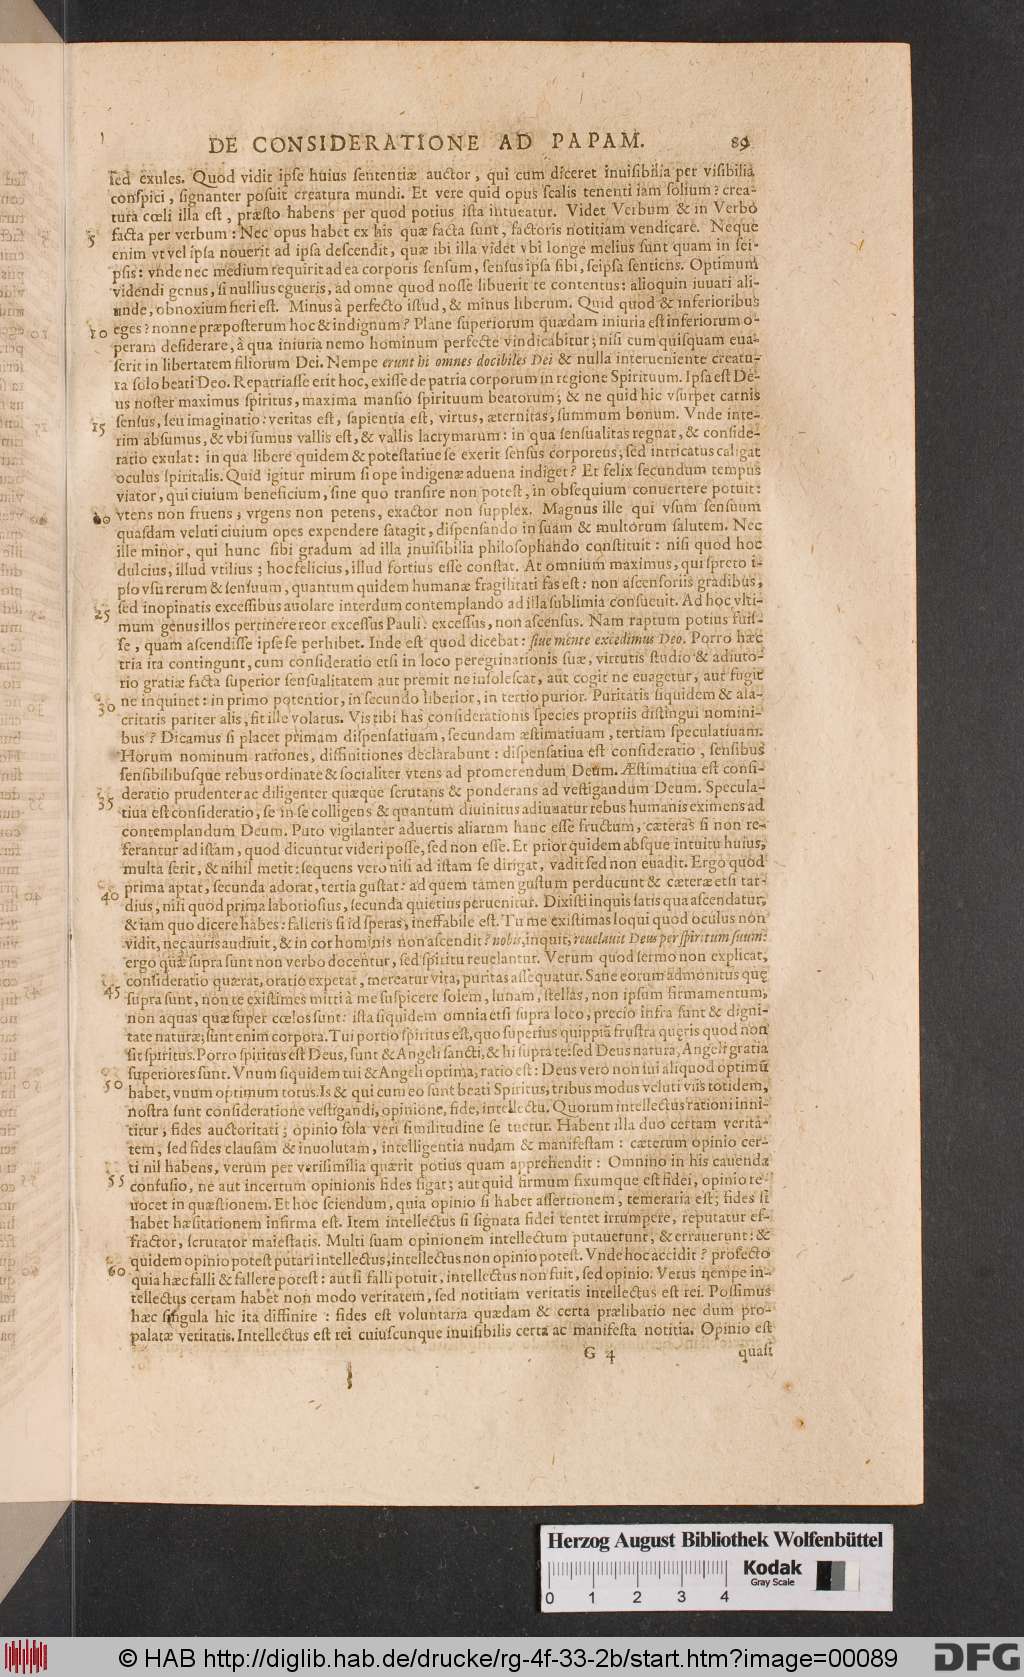 DE CONSIDERATIONE AD PAPAM. 89
sed exules. Quod vidit ipse huius sententiæ auctor, qui cum diceret inuisibilia per visibilia
conspici, signanter posuit creatura mundi. Et vere quid opus scalis tenenti iam solium? crea-
tura cœli illa est, præsto habens per quod potius ista intueatur. Videt Verbum & in Verbo
5 facta per verbum: Nec opus habet ex his quæ facta sunt, factoris notitiam vendicare. Neque
enim vt vel ipsa nouerit ad ipsa descendit, quæ ibi illa videt vbi longe melius sunt quam in sei-
psis: vnde nec medium requirit ad ea corporis sensum, sensus ipsa sibi, seipsa sentiens. Optimum
videndi genus, si nullius egueris, ad omne quod nosse libuerit te contentus: alioquin iuuari ali-
unde, obnoxium fieri est. Minus à perfecto istud, & minus liberum. Quid quod & inferioribus
10 eges? nonne præposterum hoc & indignum? Plane superiorum quædam iniuria est inferiorum o-
peram desiderare, à qua iniuria nemo hominum perfecte vindicabitur; nisi cum quisquam eua-
serit in libertatem filiorum Dei. Nempe erunt hi omnes docibiles Dei & nulla interueniente creatu-
ra solo beati Deo. Repatriasse erit hoc, exisse de patria corporum in regione Spirituum. Ipsa est De-
us noster maximus spiritus, maxima mansio spirituum beatorum; & ne quid hic vsurpet carnis
15 sensus, seu imaginatio: veritas est, sapientia est, virtus, æternitas, summum bonum. Vnde inte-
rim absumus, & vbi sumus vallis est, & vallis lacrymarum: in qua sensualitas regnat, & conside-
ratio exulat: in qua libere quidem & potestatiue se exerit sensus corporeus, sed intricatus caligat
oculus spiritalis. Quid igitur mirum si ope indigenæ aduena indiget? Et felix secundum tempus
viator, qui ciuium beneficium, sine quo transire non potest, in obsequium conuertere potuit:
20 vtens non fruens; vrgens non petens, exactor non supplex. Magnus ille qui vsum sensuum
quasdam veluti ciuium opes expendere satagit, dispensando in suam & multorum salutem. Nec
ille minor, qui hunc sibi gradum ad illa inuisibilia philosophando constituit: nisi quod hoc
dulcius, illud vtilius; hoc felicius, illud fortius esse constat. At omnium maximus, qui spreto i-
pso vsu rerum & sensuum, quantum quidem humanæ fragilitati fas est: non ascensoriis gradibus,
25 sed inopinatis excessibus auolare interdum contemplando ad illa sublimia consueuit. Ad hoc vlti-
mum genus illos pertinere reor excessus Pauli: excessus, non ascensus. Nam raptum potius fuis-
se, quam ascendisse ipse se perhibet. Inde est quod dicebat: siue mente excedimus Deo. Porro hæc
tria ita contingunt, cum consideratio etsi in loco peregrinationis suæ, virtutis studio & adiuto-
rio gratiæ facta superior sensualitatem aut premit ne insolescat, aut cogit ne euagetur, aut fugit
30 ne inquinet: in primo potentior, in secundo liberior, in tertio purior. Puritatis siquidem & ala-
critatis pariter alis, fit ille volatus. Vis tibi has considerationis species propriis distingui nomini-
bus? Dicamus si placet primam dispensatiuam, secundam æstimatiuam, tertiam speculatiuam.
Horum nominum rationes, diffinitiones declarabunt: dispensatiua est consideratio, sensibus
sensibilibusque rebus ordinate & socialiter vtens ad promerendum Deum. Æstimatiua est consi-
deratio prudenter ac diligenter quæque scrutans & ponderans ad vestigandum Deum. Specula-
35 tiua est consideratio, se in se colligens & quantum diuinitus adiuuatur rebus humanis eximens ad
contemplandum Deum. Puto vigilanter aduertis aliarum hanc esse fructum, cæteras si non re-
ferantur ad istam, quod dicuntur videri posse, sed non esse. Et prior quidem absque intuitu huius,
multa serit, & nihil metit: sequens vero nisi ad istam se dirigat, vadit sed non euadit. Ergo quod
prima aptat, secunda adorat, tertia gustat: ad quem tamen gustum perducunt & cæteræ etsi tar-
40 dius, nisi quod prima laboriosius, secunda quietius peruenitur. Dixisti inquis satis qua ascendatur,
& iam quo dicere habes: falleris si id speras, ineffabile est. Tu me existimas loqui quod oculus non
vidit, nec auris audiuit, & in cor hominis non ascendit? nobis, inquit, reuelauit Deus per spiritum suum:
ergo quæ supra sunt non verbo docentur, sed spiritu reuelantur. Verum quod sermo non explicat,
consideratio quærat, oratio expetat, mereatur vita, puritas assequatur. Sane eorum admonitus quę
45 supra sunt, non te existimes mitti à me suspicere solem, lunam, stellas, non ipsum firmamentum,
non aquas quæ super cœlos sunt: ista siquidem omnia etsi supra loco, precio infra sunt & digni-
tate naturæ; sunt enim corpora. Tui portio spiritus est, quo superius quippiã frustra quęris quod non
sit spiritus. Porro spiritus est Deus, sunt & Angeli sancti, & hi supra te: sed Deus natura, Angeli gratia
superiores sunt. Vnum siquidem tui & Angeli optima, ratio est: Deus vero non sui aliquod optimũ
50 habet, vnum optimum totus. Is & qui cum eo sunt beati Spiritus, tribus modus veluti viis totidem,
nostra sunt consideratione vestigandi, opinione, fide, intellectu. Quorum intellectus rationi inni-
titur, fides auctoritati; opinio sola veri similitudine se tuetur. Habent illa duo certam verita-
tem, sed fides clausam & inuolutam, intelligentia nudam & manifestam: cæterum opinio cer-
ti nil habens, verum per verisimilia quærit potius quam apprehendit: Omnino in his cauenda
55 confusio, ne aut incertum opinionis fides figat; aut quid firmum fixumque est fidei, opinio re-
uocet in quæstionem. Et hoc sciendum, quia opinio si habet assertionem, temeraria est; fides si
habet hæsitationem infirma est. Item intellectus si signata fidei tentet irrumpere, reputatur ef-
fractor, scrutator maiestatis. Multi suam opinionem intellectum putauerunt, & errauerunt: &
quidem opinio potest putari intellectus, intellectus non opinio potest. Vnde hoc accidit? profecto
60 quia hæc falli & fallere potest: aut si falli potuit, intellectus non fuit, sed opinio. Verus nempe in-
tellectus certam habet non modo veritatem, sed notitiam veritatis intellectus est rei. Possimus
hæc singula hic ita diffinire: fides est voluntaria quædam & certa prælibatio nec dum pro-
palatæ veritatis. Intellectus est rei cuiuscunque inuisibilis certa ac manifesta notitia. Opinio est
G 4 quasi
Herzog August Bibliothek Wolfenbüttel
Kodak
Gray Scale
0 1 2 3 4
© HAB http://diglib.hab.de/drucke/rg-4f-33-2b/start.htm?image=00089
DFG